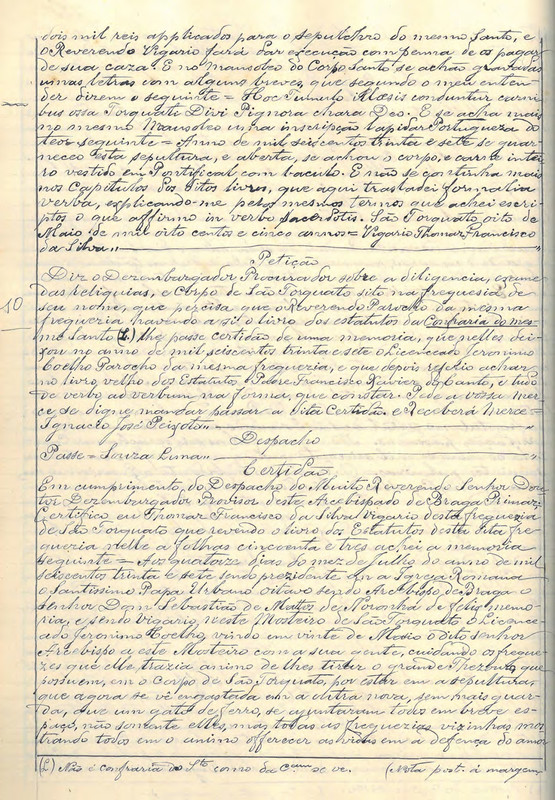 dois mil reis applicados para o sepulchro do mesmo Santo, e
o Reverendo Vigario fará dar execução com penna de os pagar
de sua caza. E no mausoleo do Corpo Santo se achão gravadas
humas letras com alguns breves, que segundo o meu enten-
der dizem o seguinte = Hoc Tumulo Klæsis conduntur carni
bus ossa Torquati Divi Pignora chara Deo. E se acha mais
no mesmo Mausoleo uma inscripção lapidar Portugueza do
teor seguinte = Anno de mil seiscentos trinta e sete se guar-
neceo esta sepultura, e aberta, se achou o corpo, e carne intei
ro vestido em Pontifical com baculo. E não se continha mais
nos Capitulos dos ditos livros, que aqui trasladei formalia
verba, explicando-me pelos mesmos termos que achei escri-
ptos o que affirmo in verbo Sacerdotis. São Torquato, oito de
Maio de mil oito centos e cinco annos = Vigario Thomaz Francisco
da Silva,,
Petição
Diz o Dezembargador Procurador sobre a diligencia, exame
das Reliquias, e Corpo de São Torquato sito na freguesia de
seu nome, que perciza que o Reverendo Parocho da mesma
freguezia havendo a si o livro dos estatutos da Confraria do mes-
mo Santo (L.) lhe passe certidão de uma memoria, que nelles dei-
xou no anno de mil seiscentos trinta e sete o Licenceado Jeronimo
Coelho Parocho da mesma freguezia, e que depois refirio achar
no livro velho dos Estatutos o Padre Francisco Xavier do Canto, e tudo
de verbo ad verbum na forma, que constar. Pede a vossa mer-
ce se digne mandar passar a dita Certidão. e Receberá Merce =
Ignacio José Peixoto,,
Despacho
Passe = Souza Lima
Certidão
Em cumprimento do Despacho do Muito Reverendo Senhor Dou-
tor Dezembargador Provisor deste Arcebispado de Braga Primaz,
Certifico eu Thomaz Francisco da Silva Vigario desta freguezia
de São Torquato que revendo o livro dos Estatutos desta dita fre-
guezia nelle a folhas cincoenta e tres achei a memoria
seguinte = Aos quatorze dias do mez de Julho do anno de mil
seiscentos trinta e sete sendo prezidente na Igreja Romana
o Santissimo Papa Urbano oitavo sendo Arcebispo de Braga o
Senhor Dom Sebastião de Mattos de Noronha de feliz memo-
ria, e sendo Vigario neste Mosteiro de São Torquato o Licence-
ado Jeronimo Coelho, vindo em vinte de Maio o dito senhor
Arcebispo a este Mosteiro com a sua gente, cuidando os fregue-
zes que elle trazia animo de lhes tirar o grande Thezouro, que
possuem, em o Corpo de São Torquato, por estar em a sepultura,
que agora se vê engastada em a outra nova, sem mais guar-
da, que um gato de ferro, se ajuntaram todos em breve es-
paço, não somente elles, mas todas as freguezias vizinhas mos
trando todos em o animo offerecer as vidas em a defença do amor
10
(L) Não é confraria do Sto como da Cam se ve. (Nota post. á margem